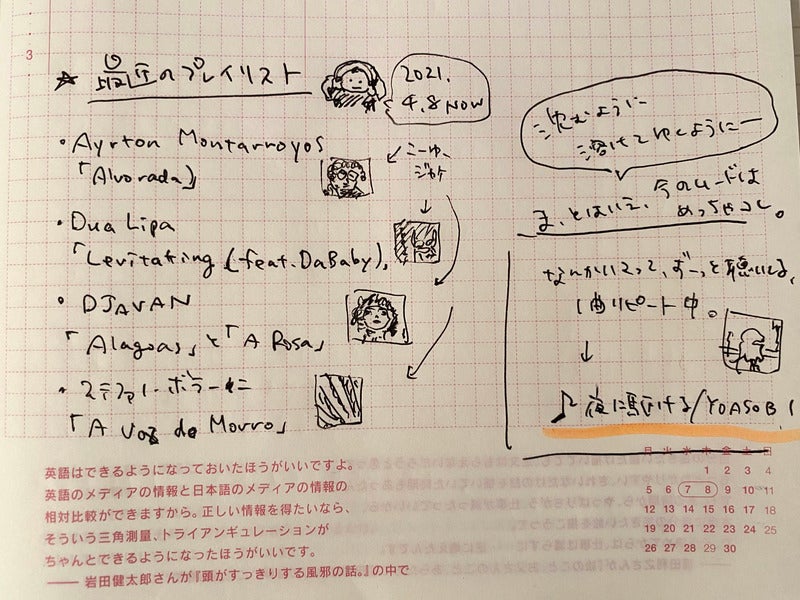 3
☆ 最近のプレイリスト
2021.
4.8 NOW
・Ayrton Montarroyos
「Alvorada」
こーゆー
ジャケ
・Dua Lipa
「Levitating (feat. DaBaby)」
・DJAVAN
「Alagoas」と「A Rosa」
・ステファノ・ボラーニ
「A Voz do Morro」
沈むように
溶けてゆくようにー
ま、とはいえ、今のムードは
めっちゃコレ。
なんかいまって、ずーっと聴いてる、
1曲リピート中。
↓
♪ 夜に駆ける/YOASOBI
英語はできるようになっておいたほうがいいですよ。
英語のメディアの情報と日本語のメディアの情報の
相対比較ができますから。正しい情報を得たいなら、
そういう三角測量、トライアンギュレーションが
ちゃんとできるようになったほうがいいです。
―― 岩田健太郎さんが『頭がすっきりする風邪の話。』の中で
月 火 水 木 金 土 日
1 2 3 4
5 6 7 8 9 10 11
12 13 14 15 16 17 18
19 20 21 22 23 24 25
26 27 28 29 30